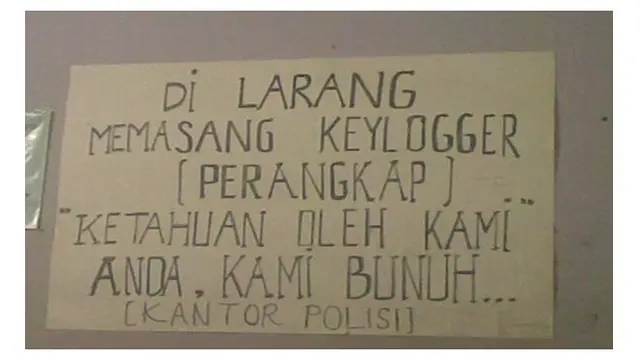 Di LARANG
MEMASANG KEYLOGGER
[PERANGKAP]
"KETAHUAN OLEH KAMI
ANDA, KAMI BUNUH..."
[KANTOR POLISI]